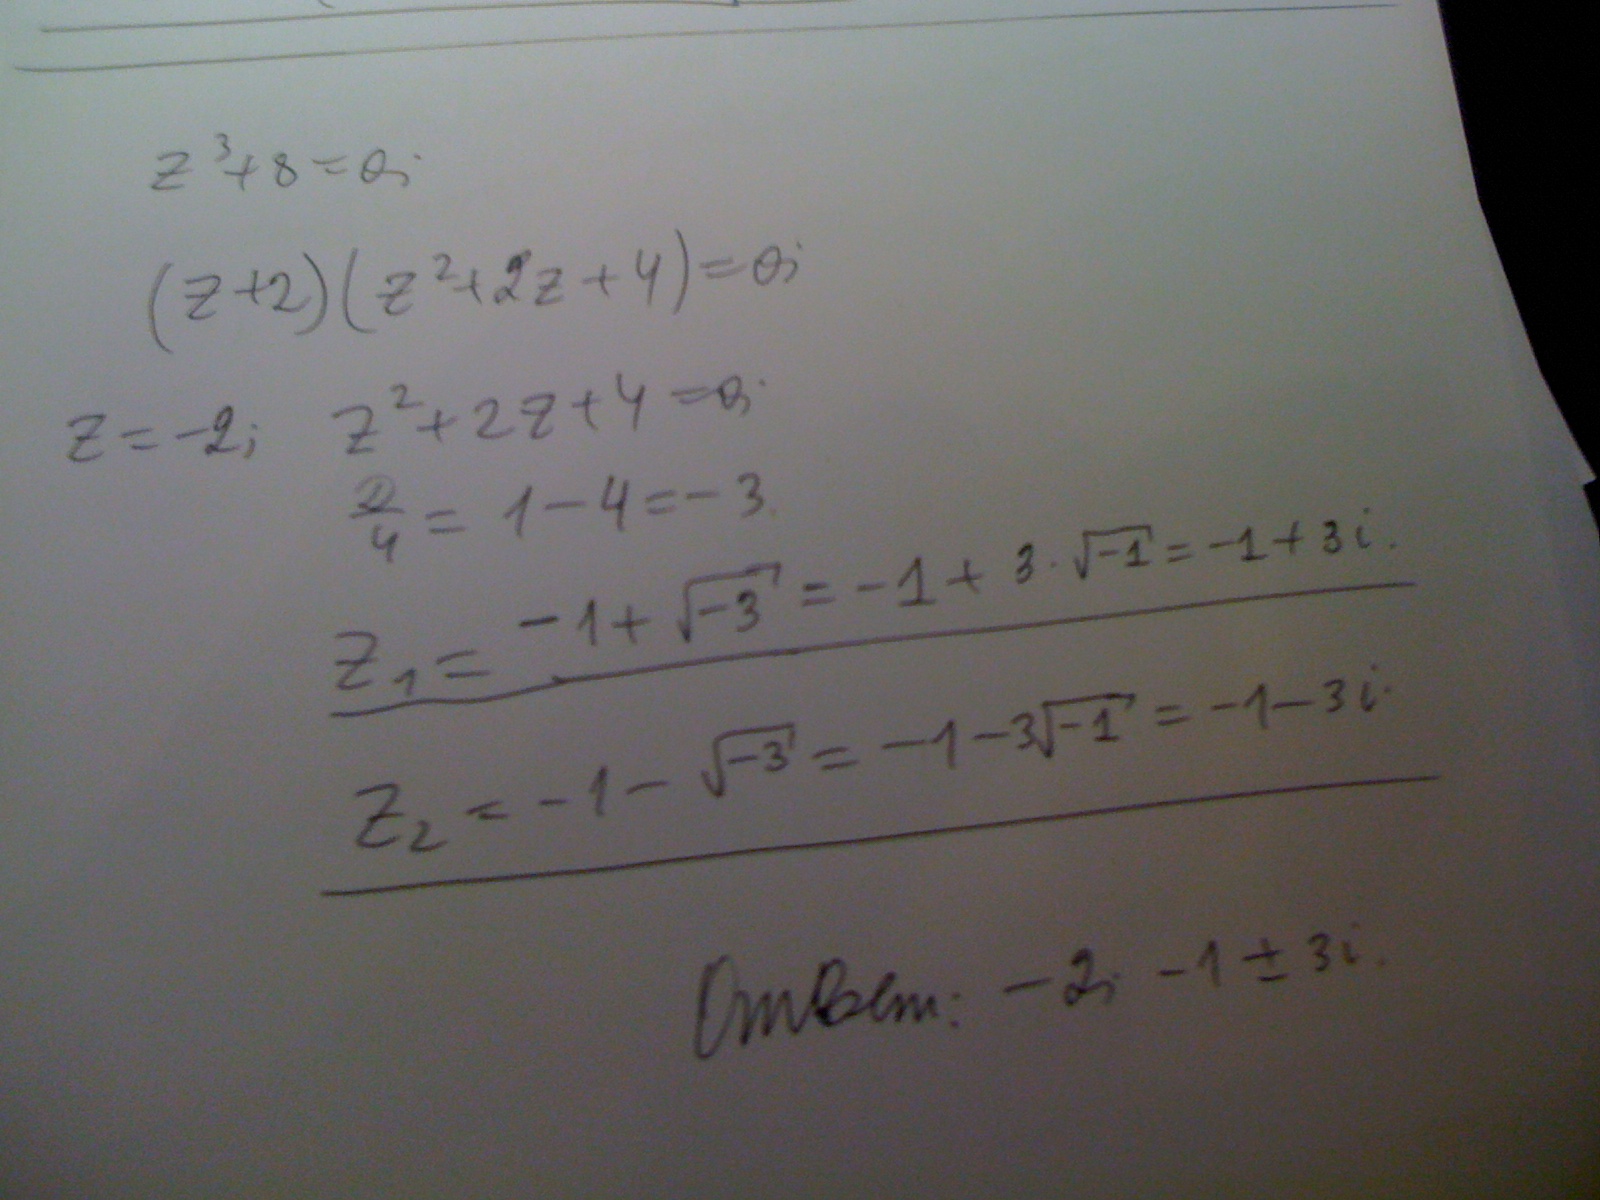 z³+8=0;
(z+2)(z²+2z+4)=0;
z=-2; z²+2z+4=0;
D/4 = 1-4=-3.
z₁= -1+√-3 = -1+3·√-1 = -1+3i.
z₂ = -1-√-3 = -1-3√-1 = -1-3i.
Ответ: -2; -1±3i.